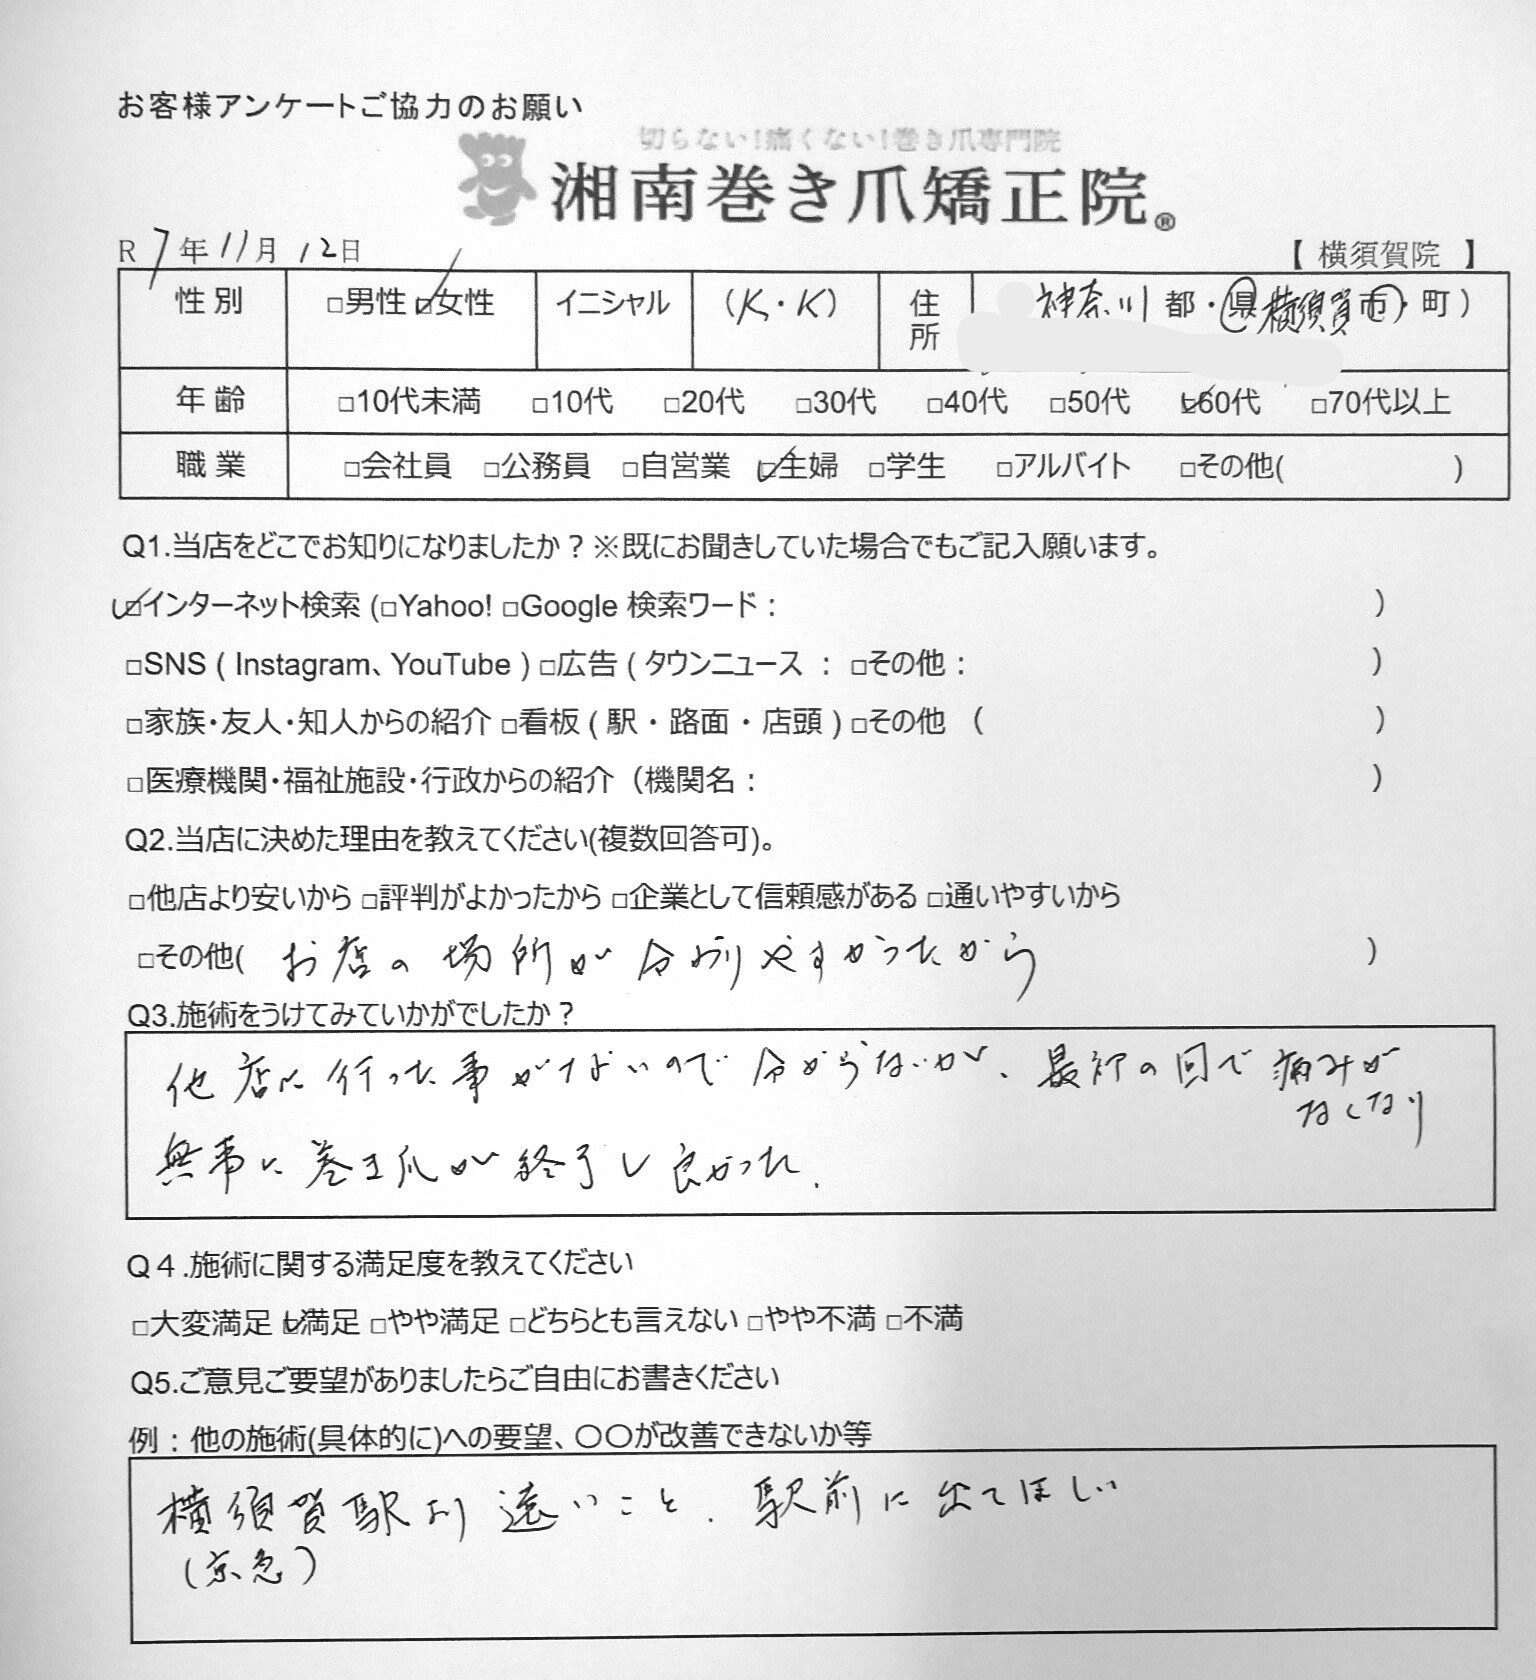 お客様アンケートご協力のお願い
切らない!痛くない!巻き爪専門院
湘南巻き爪矯正院®
R 7年 11月 12日 【 横須賀院 】
性別 □男性 ☑女性 イニシャル (K・K) 住所 神奈川 都・県 横須賀 市・町)
年齢 □10代未満 □10代 □20代 □30代 □40代 □50代 ☑60代 □70代以上
職業 □会社員 □公務員 □自営業 ☑主婦 □学生 □アルバイト □その他( )
Q1.当店をどこでお知りになりましたか？※既にお聞きしていた場合でもご記入願います。
☑インターネット検索 (□Yahoo! □Google 検索ワード： )
□SNS ( Instagram、YouTube ) □広告 ( タウンニュース ： □その他： )
□家族・友人・知人からの紹介 □看板 ( 駅 ・ 路面 ・ 店頭 ) □その他 ( )
□医療機関・福祉施設・行政からの紹介（機関名： )
Q2.当店に決めた理由を教えてください(複数回答可)。
□他店より安いから □評判がよかったから □企業として信頼感がある □通いやすいから
□その他( お店の場所が分かりやすかったから )
Q3.施術をうけてみていかがでしたか？
他店に行った事がないので分からないが、最初の回で痛みが
なくなり
無事に巻き爪が終了し良かった.
Q４.施術に関する満足度を教えてください
□大変満足 ☑満足 □やや満足 □どちらとも言えない □やや不満 □不満
Q5.ご意見ご要望がありましたらご自由にお書きください
例：他の施術(具体的に)への要望、〇〇が改善できないか等
横須賀駅より遠いこと. 駅前に出てほしい
(京急)